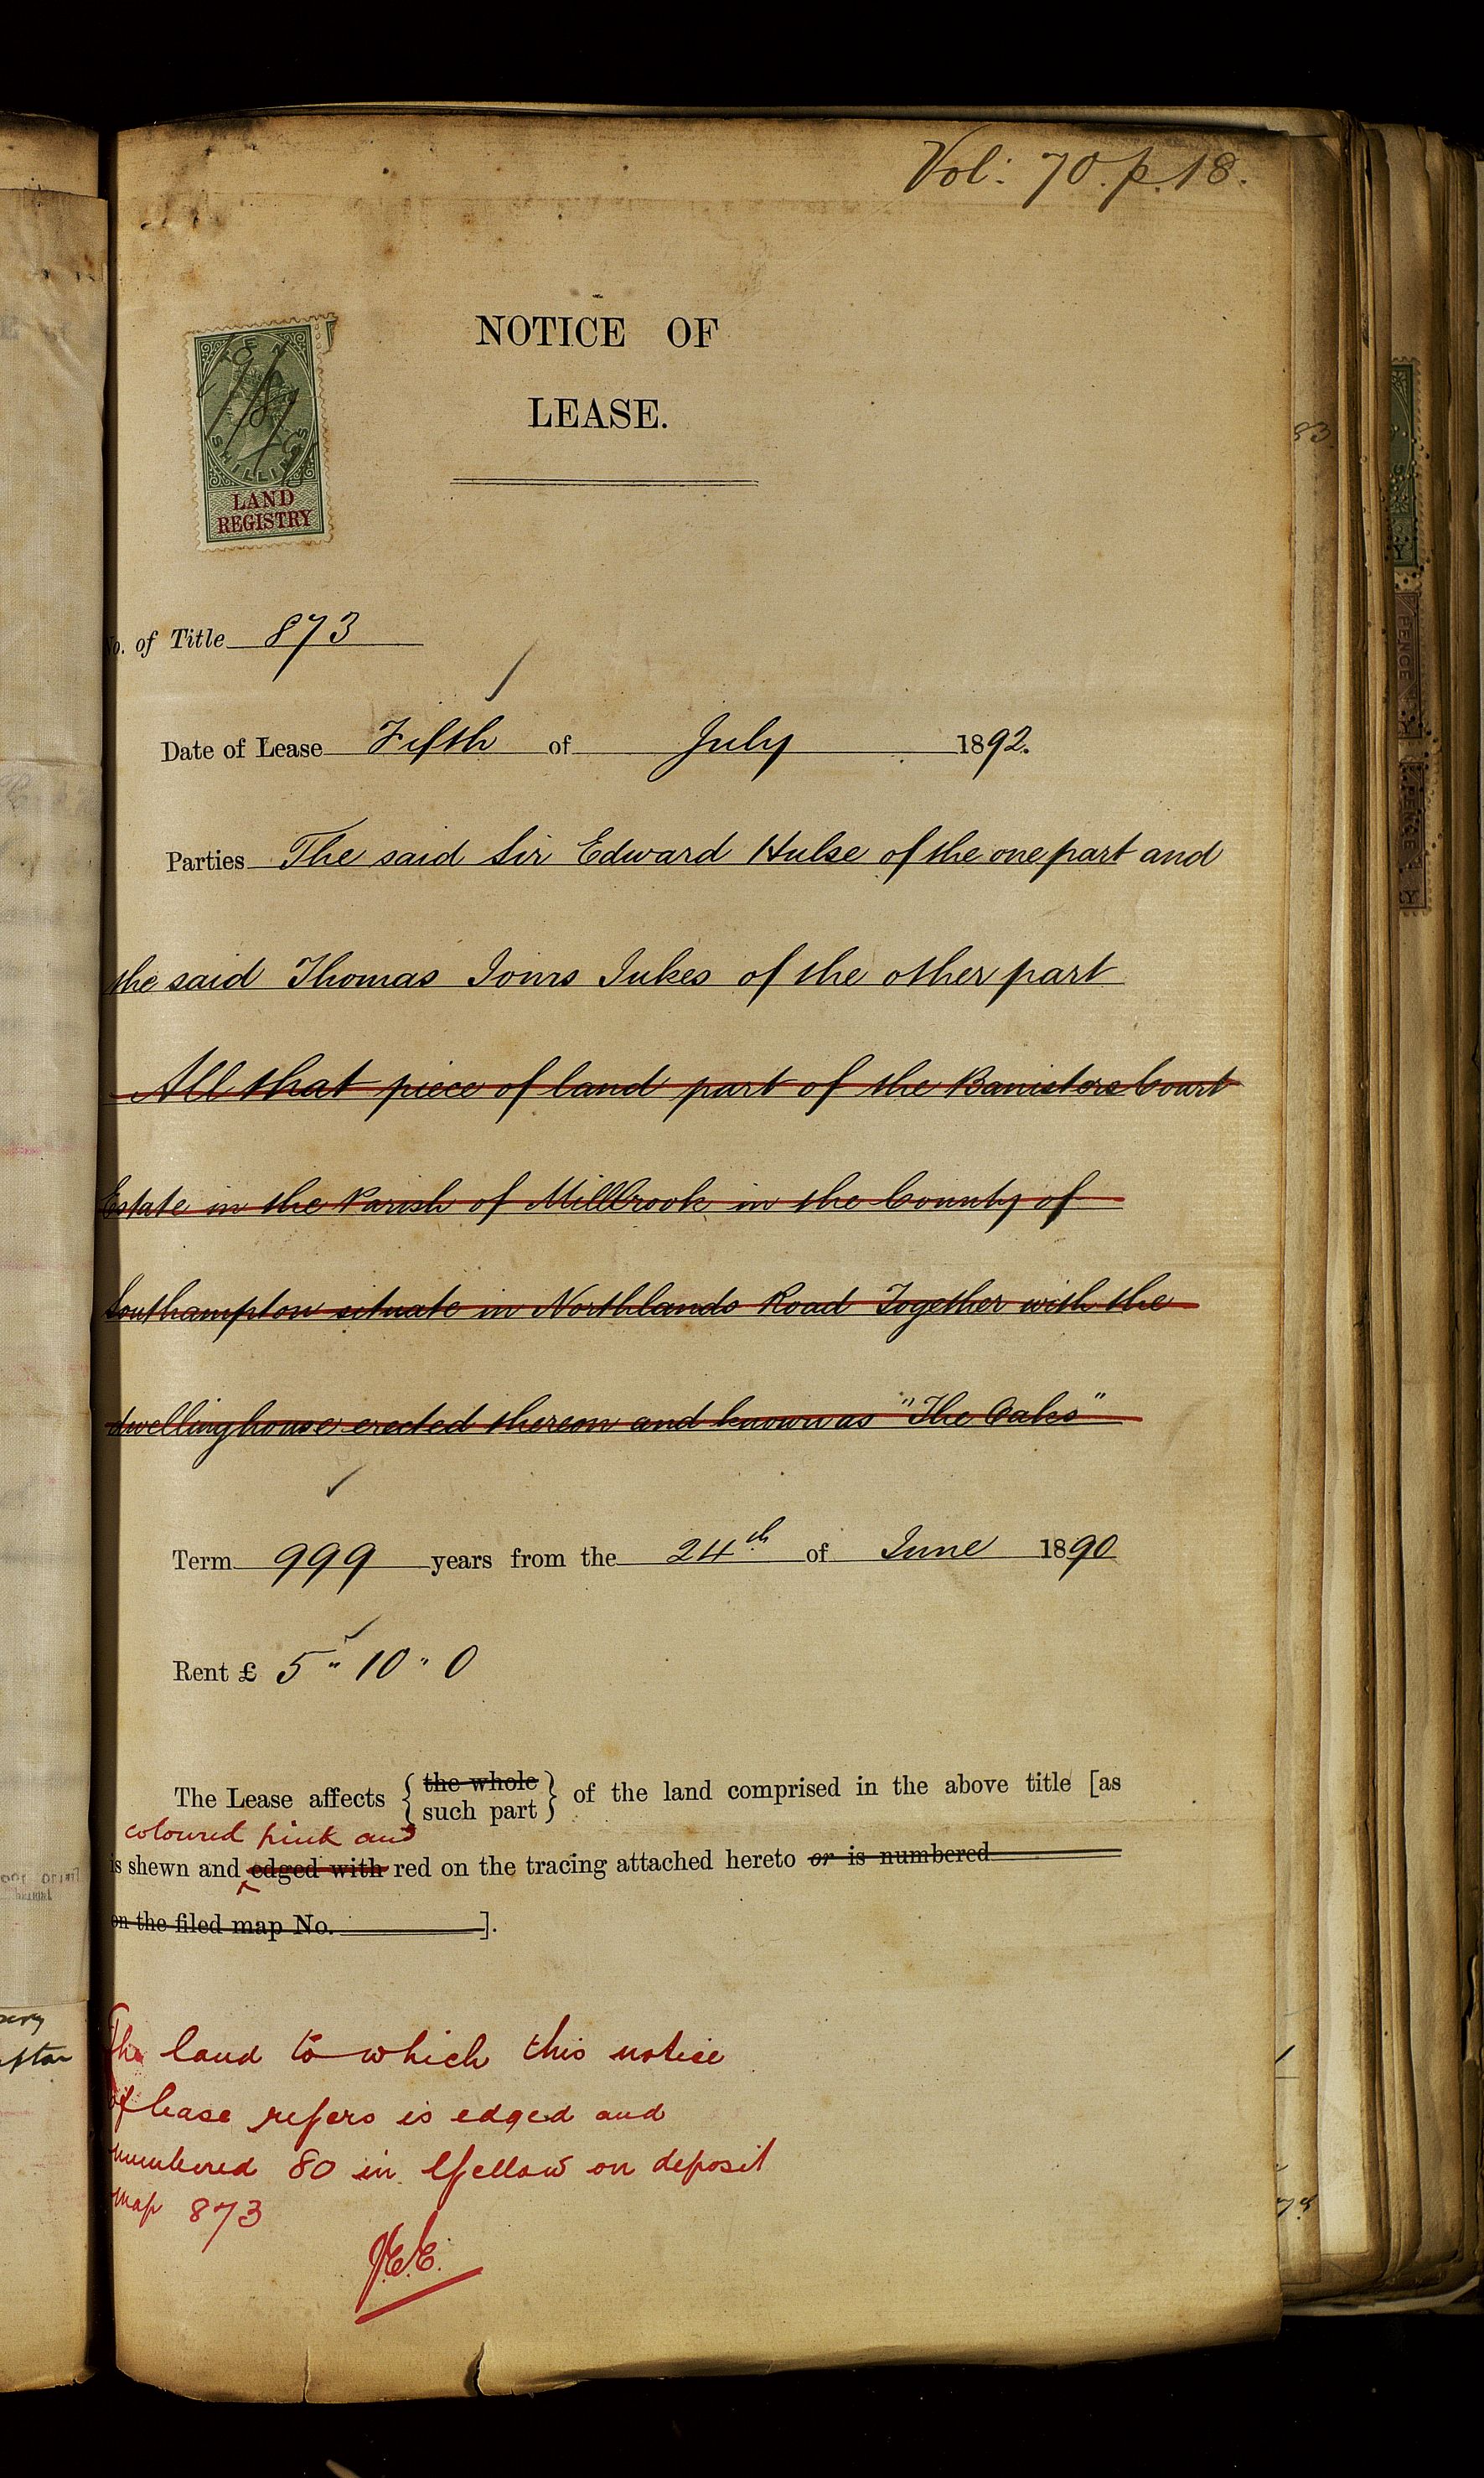 Vol: 70. p. 18.
NOTICE OF
LEASE.
SHILLINGS
LAND
REGISTRY
No. of Title 873
Date of Lease Fifth of July 1892.
Parties The said Sir Edward Hulse of the one part and
the said Thomas Jukes of the other part
All that piece of land part of the Banisters Court
Estate in the Parish of Millbrook in the County of
Southampton situate in Northlands Road Together with the
dwellinghouse erected thereon and known as "The Oaks"
Term 999 years from the 24th of June 1890
Rent £ 5 " 10 " 0
The Lease affects { the whole
such part } of the land comprised in the above title [as
coloured pink and
is shewn and edged with red on the tracing attached hereto or is numbered
on the filed map No. ].
The land to which this notice
of lease refers is edged and
numbered 80 in Yellow on deposit
map 873
J.E.E.